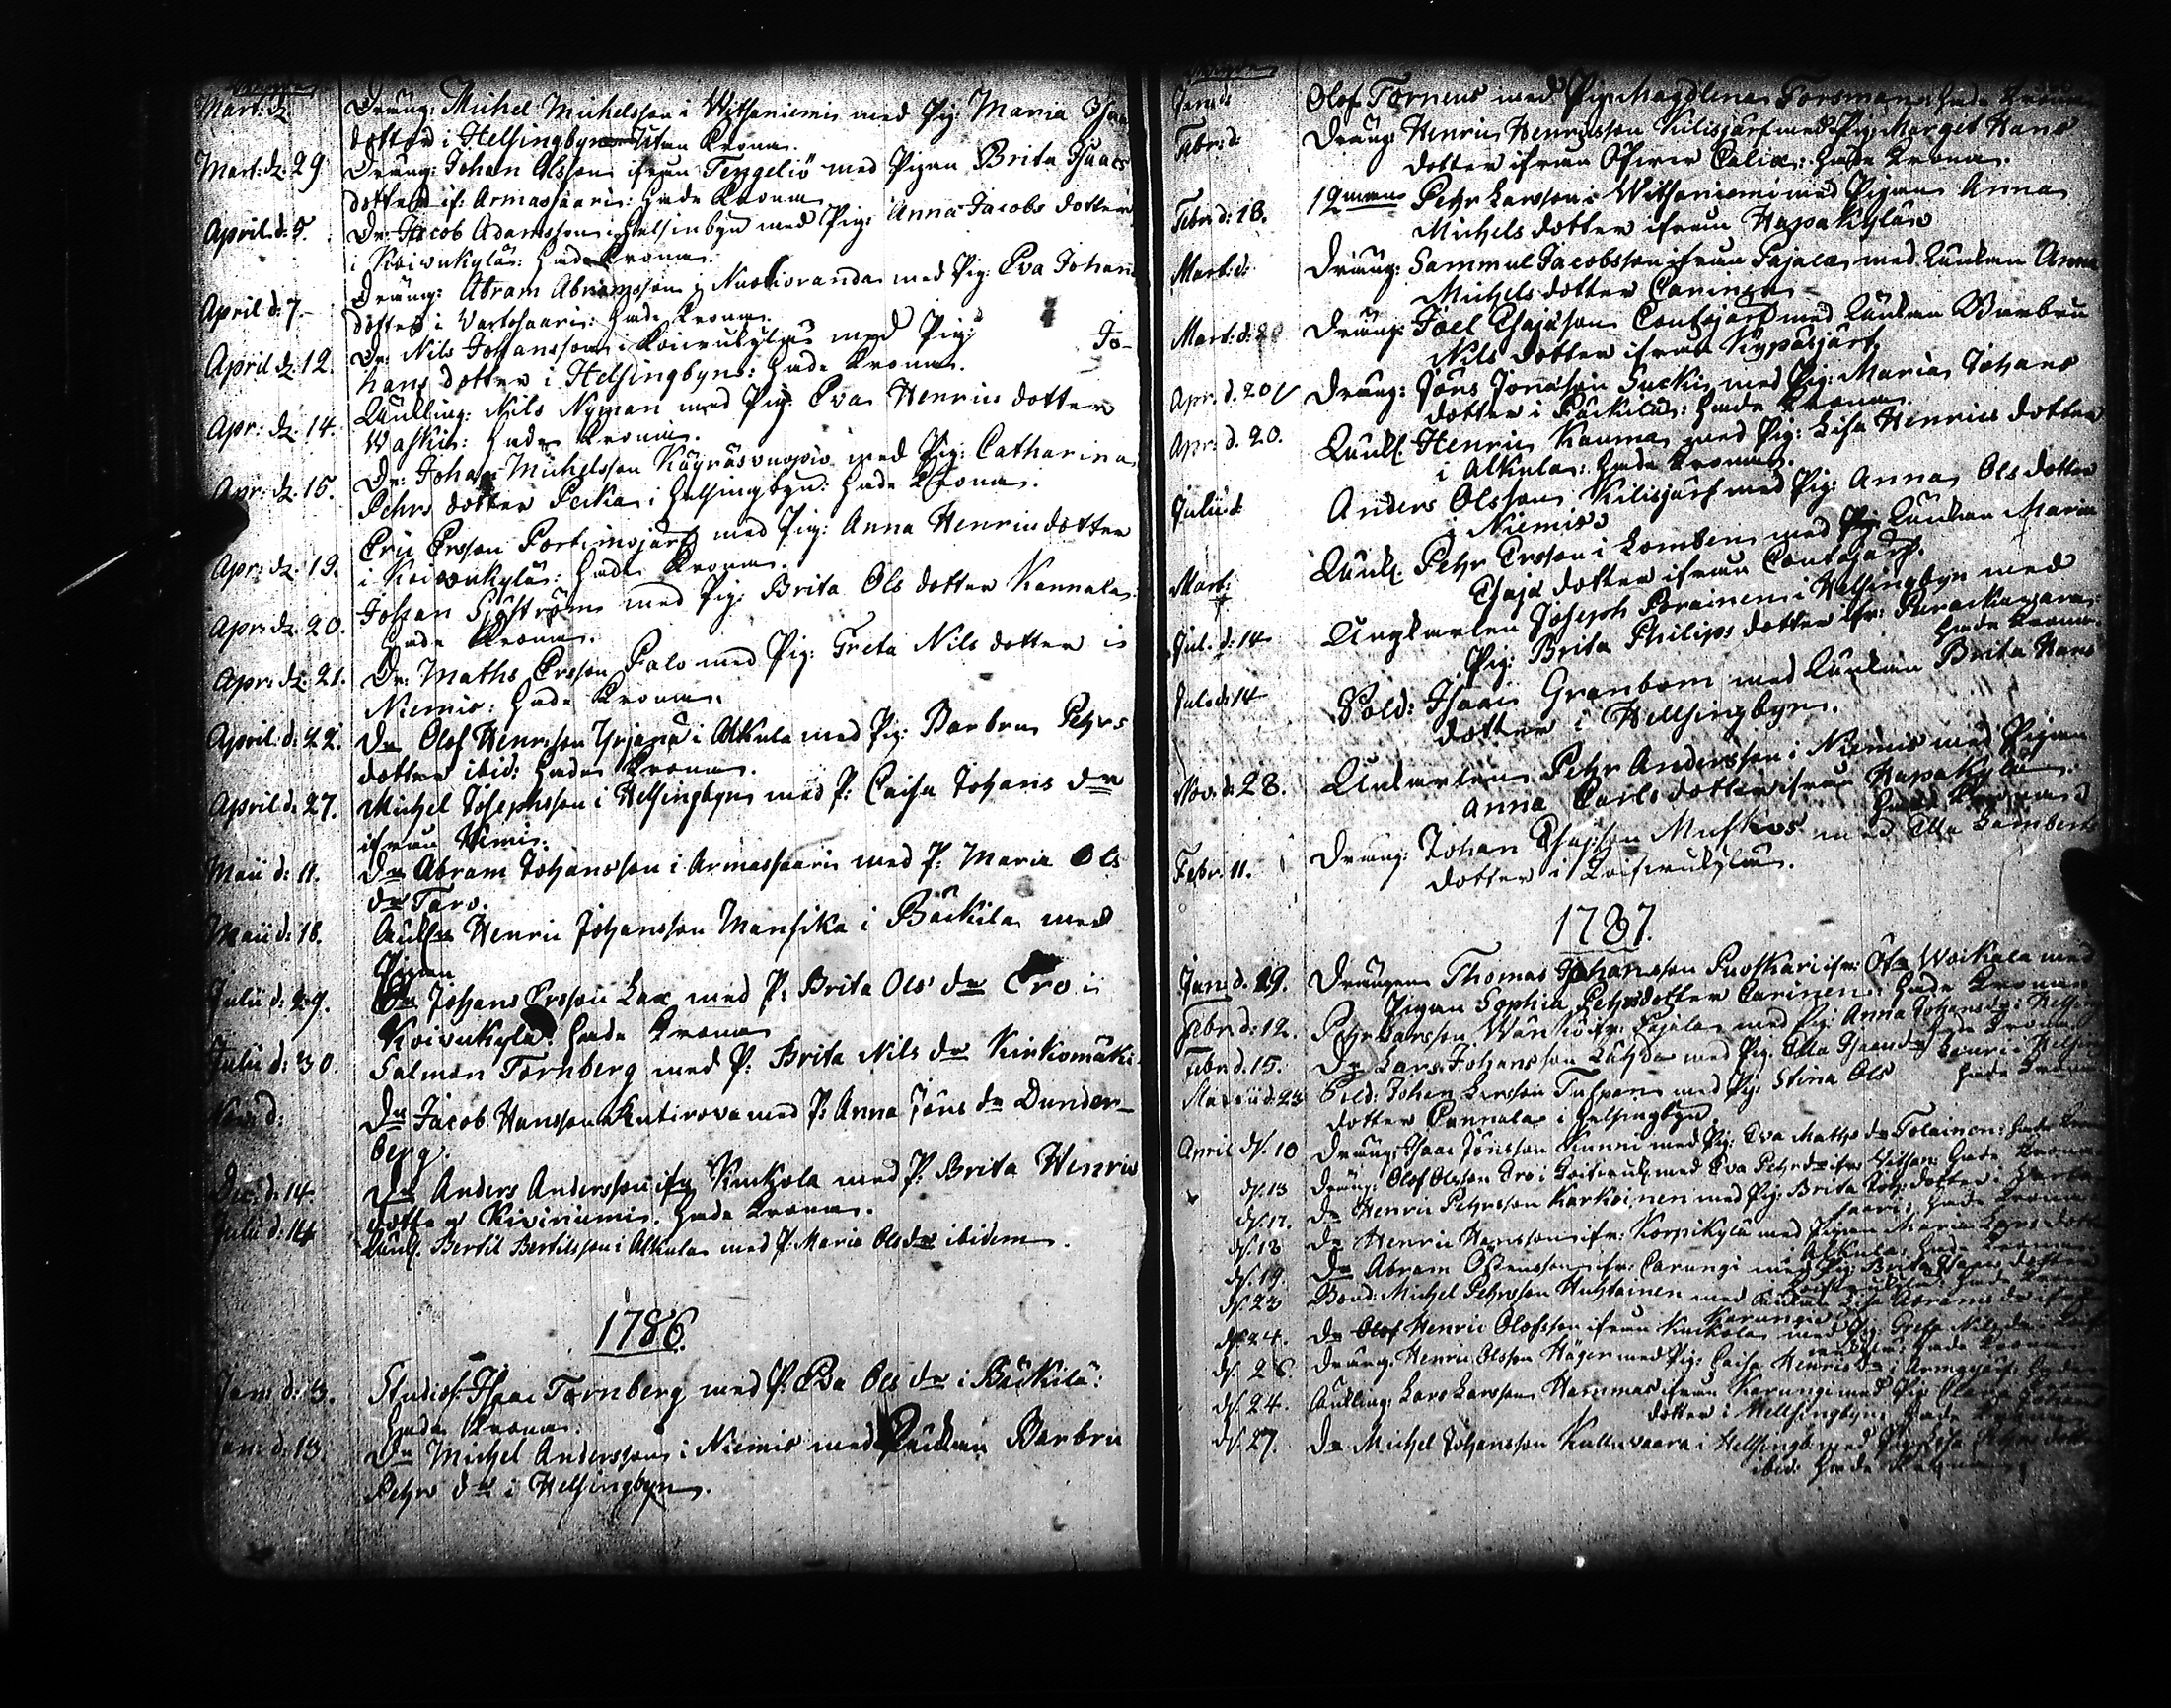 Mart: d: Dräng: Michel Michelsson i Witsaniemi med Pig: Maria Isaa
dotter i Helsingbyn utan Krona.
Mart: d: 29 Dräng: Johan Olsson ifrån Tengeliö med Pigan Brita Isaacs
dotter if: Armassaari: hade Krona
April d: 5. Dr: Jacob Adamsson i Helsinbyn med Pig: Anna Jacobs dotter
i Koivukylä: hade Krona.
April d: 7. Dräng: Abram Abramsson i Nuotioranda med Pig: Eva Johans
dotter i Wartosaari: hade Krona.
April d: 12. Dr: Nils Johansson i Koivukylä med Pig: Jo-
hans dotter i Helsingbyn: hade Krona.
Apr: d: 14. Änkling: Nils Nyman med Pig: Eva Henrics dotter
Waskis: hade Krona.
Apr: d: 15. Dr: Johan Michelsson Käyräsvuopio med Pig: Catharina
Pehrs dotter Pecka i Helsingbyn: hade Krona.
Apr: d: 19. Eric Ersson Portimojärf med Pig: Anna Henricsdotter
i Koivukylä: hade Krona.
Apr: d: 20. Johan Sjöström med Pig: Brita Ols dotter Kannala
hade Krona.
Apr: d: 21. Dr: Maths Ersson Palo med Pig: Greta Nils dotter i
Niemis: hade Krona.
April: d: 22. Dn Olof Henrsson Yrjänä i Alkula med Pig: Barbru Pehrs
dotter ibid: hade Krona.
April d: 27. Michel Josephsson i Helsingbyn med P: Caisa Johans dr
ifrån Kimi.
Maii d: 11. Dn Abram Johansson i Armassaari med P: Maria Ols
dr Taro.
Maii d: 18. Änkl: Henric Johansson Mansika i Bäckila med
Pigan
Julii d: 29. Dn Johans Ersson Lax med P: Brita Ols dr Ero i
Koivukylä: hade Krona
Julii d: 30. Salmon Tornberg med P: Brita Nils dr Kirkomäki
Nov: d: Dn Jacob Hansson Kutirova med P: Anna Jöns dr Dunder-
berg.
Dec: d: 14 Dn Anders Andersson ifr Kuckola med P: Brita Henrics
dotter Kiviniemi. hade Krona.
Julii d: 14 Änkl. Bertil Bertilsson i Alkula med P: Maria Ols dr ibidem.
1786.
Jan: d: 3. Studios: Isaac Tornberg med P: Eva Ols dr i Bäckilä:
hade Krona.
Jan: d: 13. Dn Michel Andersson i Niemis med Änkan Barbru
Pehrs dr i Helsingbyn.
Janu: Olof Torneus med Pig: Magdlena Forsman: hade Krona
Febr: d: Dräng: Henric Henricsson Kilisjärf med Pig: Marget Hans
dotter ifrån Öfwer Calix: hade Krona.
Febr: d: 18. 12man Pehr Larsson i Witsaniemi med Pigan Anna
Michels dotter ifrån Hapakylä
Mart: d: Dräng: Sammul Jacobsson ifrån Pajala med Änkan Anna
Michels dotter Carinen
Mart: d: 20 Dräng: Joel Esajæson Contojärf med Änkan Barbru
Nils dotter ifrån Kypäsjärf
Apr. d. 20 Dräng: Jöns Jonasson Sucki med Pig: Maria Johans
dotter i Bäckilä: hade Krona.
Apr: d. 20. Änkl. Henric Kauma med Pig: Lisa Henrics dotter
i Alkula: hade Krona.
Julii d: Anders Olsson Kilisjärf med Pig: Anna Ols dotter
i Niemis
Mart: Änkl. Pehr Ersson i Lomben med Änkan Maria
Esajæ dotter ifrån Contojärf.
Jul. d: 14 Ungkarlen Joseph Porainen i Helsingbyn med
Pig: Brita Philips dotter ifr: Purackavara:
hade Krona.
Jul: d: 14 Sold: Isaac Granbom med Änkan Brita Hans
dotter i Hellsingbyn.
Nov: d: 28. Änkarlen Pehr Andersson i Niemis med Pigan
Anna Carls dotter ifrån Hapakylä
hade Krona.
Febr: 11. Dräng: Johan Esajæson Muskos med Ella Lamberts
dotter i Koifvukylä.
1787.
Jan: d. 29. Drängen Thomas Johansson Puoskari ifr: Öfr Woikala med
Pigan Sophia Pehrsdotter Carinen: hade Krona
Febr: d: 12. Pehr Larsson Wänkö ifr: Pajala med Pig: Anna Johans dr:
hade Krona
Febr: d. 15. Dn Lars Johansson med Pig: Ella Isaacs dr
Martii d: 23 Sold: Johan Larsson Taipan med Pig: Stina Ols
hade Krona
dotter Cannala i Helsingbyn
April d. 10 Dräng: Isaac Jönsson Kunni med Pig: Eva Maths dr Tolainen: hade
d. 13 Dräng: Olof Olsson Ero i Koifvuk: med Eva Pehrs dr: hade Krona
d. 17. Dn Henric Pehrsson Karkoinen med Pig: Brita Joh: dotter i
saari: hade Krona
d. 18 Dn Henric Hansson ifr: Korpikylä med Pigan Maria Lars dott
Alkula: hade Krona
d. 19. Dn Abram Össensson ifr: Carungi med Pig: Brita Hans dotter
d. 23 Bond: Michel Pehrsson Huhtainen med Änkan Lisa Abrams dr ifrån
Karungi
d. 24. Dn Henric Olofsson ifrån Kuckola med Pig: Greta Nils dr
hade Krona
d. 26. Dräng: Henric Olsson Häger med Pig: Caisa Henrics dr i Armasjärf:
d. 24. Änkling: Lars Larsson Harnmas ifrån Karungi med Pig: Clara
dotter i Hellsingbyn hade Krona
d. 27. Dn Michel Johansson Kulluvaara i Hellsingb: med Pig: Lisa Pehrs dott
ibid: hade Krona